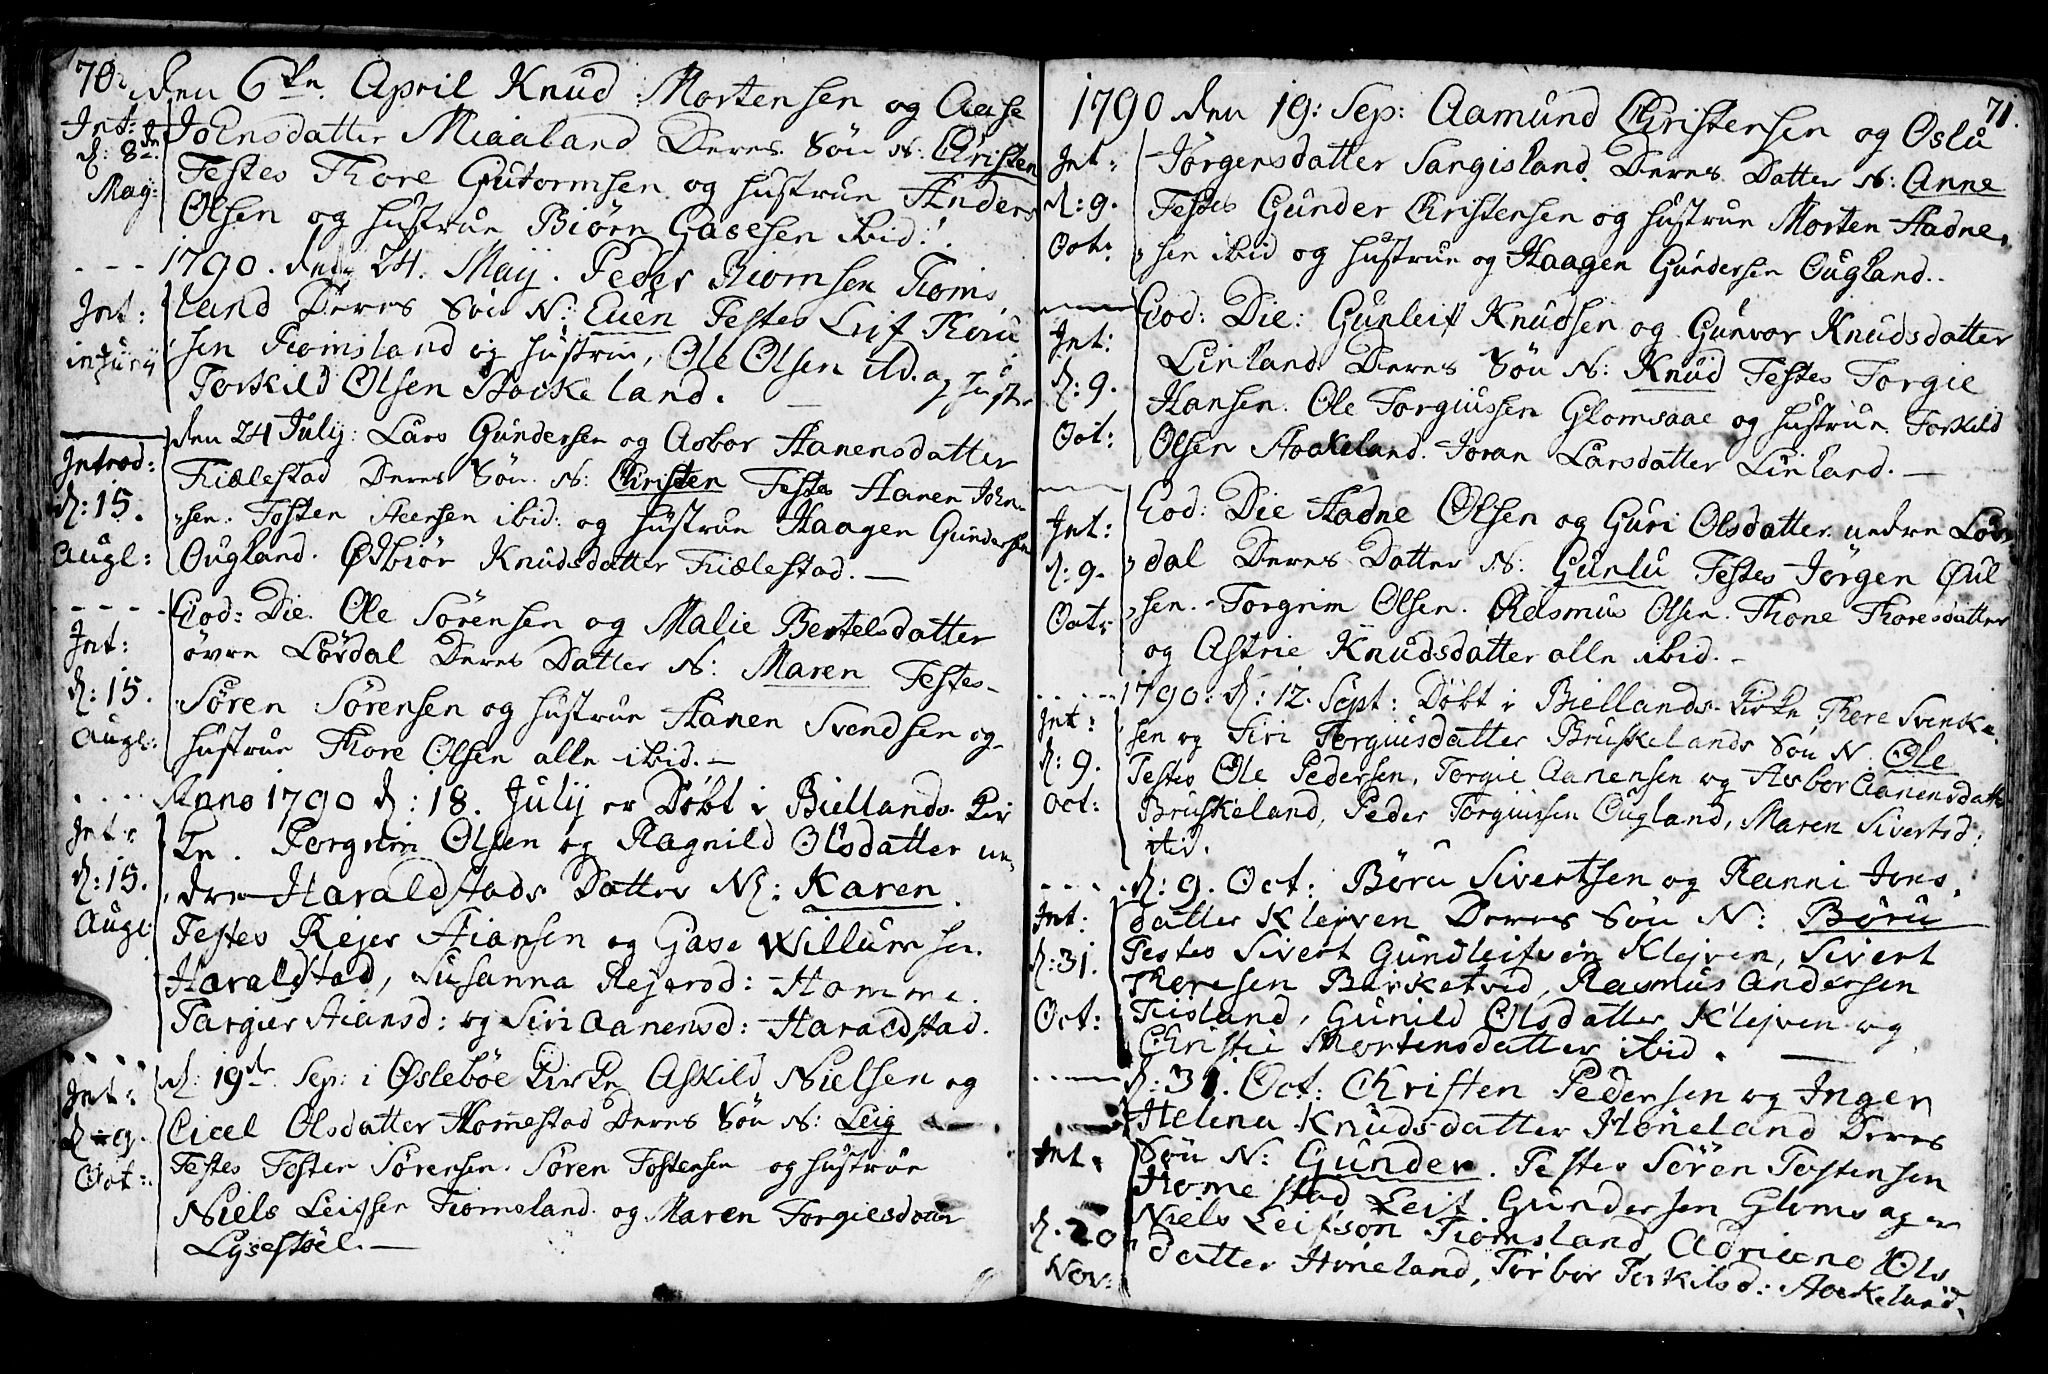 70.
den 6te April Knud Mortensen og Aase
Int: Johnsdatter Miaaland Deres Sön N: Christen
d: 8de Testes Thore Gutormsen og hustrue Anders
May: Olsen og hustrue Biörn Gasesen ibid:
1790. den 24. Maij. Peder Biornsen Tioms
Int: land Deres Sön N: Euen Testes Leif Thoru
in Junij sen Tiomsland og hustru, Ole Olsen ibd. og hustr
Torkild Olsen Stockeland.
den 24 July: Lars Gundersen og Asbor Hanensdatter
Introd: Tiælestad Deres Sön N: Christen Testes Hanen John-
d: 15. sen. Tosten Aensen ibid: og hustrue Haagen Gundersen
Augl: Ougland. Ødbiör Knudsdatter Tiælestad.—
Eod: Die. Ole Sörensen og Malie Bertelsdatter
Int: övre Lördal Deres Datter N: Maren Testes-
d: 15. Sören Sörensen og hustrue Hanen Svendsen og-
Augl: hustrue Thore Olsen alle ibid.—
Anno 1790 d: 18. Julij er Döbt i Biellands Kir
Int: ke. Torgrim Olsen og Ragnild Olsdatter ne,
d: 15. dre Haraldstads Datter N: Karen.
Augl: Testes Rejer Stiansen og Gase Willumsen.
Haraldstad, Susanna Rejersd: Homme.
Targier Stiansd: og Siri Aanensd: Haraldstad.
d: 19de Sep: i Øsleböe Kirke Askild Nielsen og
Int: Cicel Olsdatter Homestad Deres Sön N: Leig
d. 9. Testes Tosten Sörensen. Sören Tostensen og hustrue
Oct: Niels Leifsen Tiomsland. og Maren Torgiesdatter
Lysestöel.—
71.
1790 den 19: Sep: Aamund Christensen og Oslu
Int: Jörgensdatter Sangisland. Deres Datter N: Anne
d: 9. Testes Gunder Christensen og hustrue Morten Hadne,
Oct: sen ibid og hustrue og Haagen Gundersen Ougland.
Eod: Die: Gunleif Knudsen og Gunvor Knudsdatter
Int: Linland Deres Sön N: Knud Testes Torgie
d: 9. Hansen. Ole Torgiussen Glomsaae og hustrue Torkild
Oct: Olsen Stokeland. Joran Larsdatter Linland.—
Eod: Die Hadne Olsen og Guri Olsdatter nedre Lör,
Int: dal Deres Datter N: Gunlu Testes Jörgen Øul
d: 9. sen. Torgrim Olsen. Rasmus Olsen. Thone Thoresdatter
Oct: og Astrie Knudsdatter alle ibid.—
1790: d: 12. Sept: Döbt i Biellands Kirke Thore Svenke,
Int: sen og Siri Torgiusdatter Bruskelands Sön N. Ole
d: 9. Testes Ole Pedersen, Torgie Aanensen og Asbor Aanensdatter
Oct: Bruskeland, Peder Torgiussen Ougland, Maren Sivertsd:
ibid.
d: 9. Oct: Böru Sivertsen og Ranni Jons,
Int: datter Klejven Deres Sön N: Böru
d: 31. Testes Sivert Gundleifsen Klejven, Sivert
Thoresen Birketvid, Rasmus Andersen
Oct: Tiisland, Gunild Olsdatter Klejven og
Christie Mortensdatter ibid.—
d: 31. Oct: Christen Pedersen og Inger
Helena Knudsdatter Höneland Deres
Int. Sön N: Gunder. Testes Sören Tostensen
Homestad Leif Gundersen Glomsager
d. 20 Niels Leifsön Tiomsland, Adriane Ols
Nov: datter Höneland, Torbor Torkilsd: Stokeland.